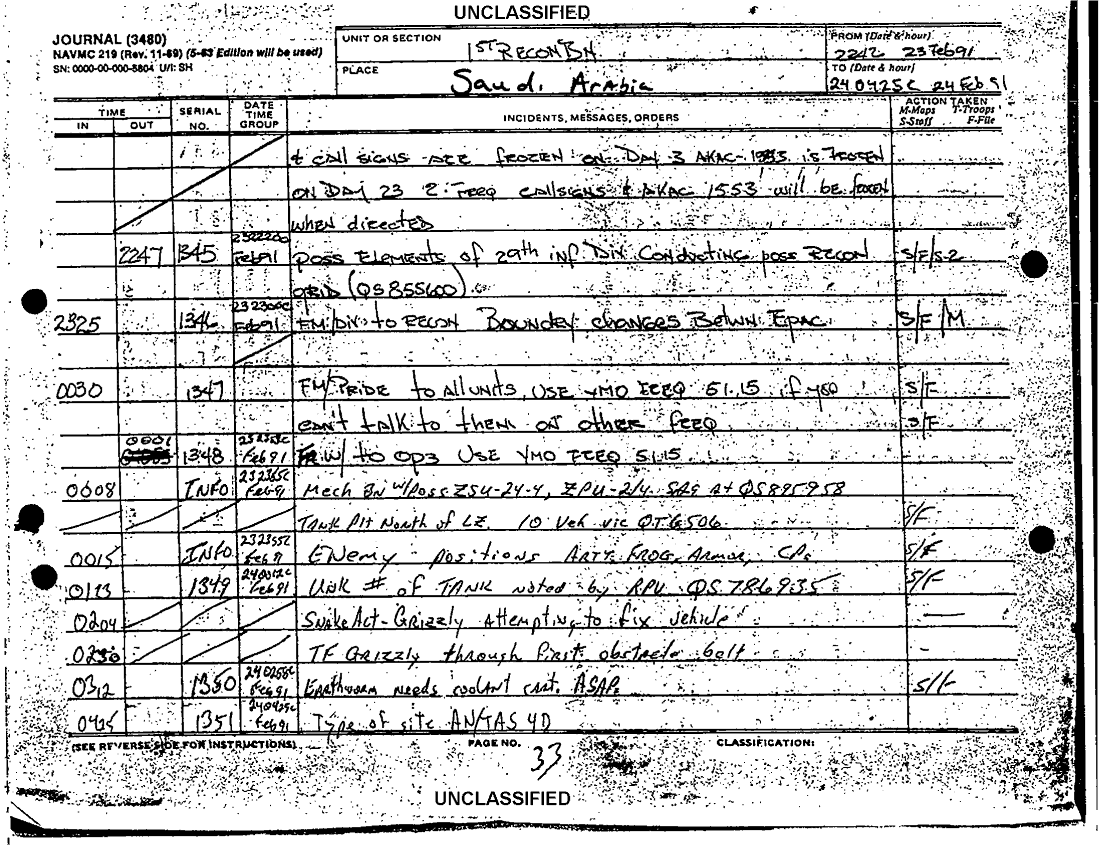 UNCLASSIFIED
JOURNAL (3480)
NAVMC 219 (Rev. 11-69) (5-63 Edition will be used)
SN: 0000-00-000-8804 U/I: SH
UNIT OR SECTION
1ST RECON BN
PLACE
Saudi Arabia
FROM (Date & hour)
2242 23 Feb 91
TO (Date & hour)
240425C 24 Feb 91
TIME
IN OUT
SERIAL NO.
DATE TIME GROUP
INCIDENTS, MESSAGES, ORDERS
ACTION TAKEN
M-Maps T-Troops
S-Staff F-File
& CALL SIGNS ARE FROZEN ON DAY 3 AKAC- is FROZEN
ON DAY 23 2. FREQ CALLSIGNS & AKAC 1553 will be frozen
when directed
2247 1345 232220C Feb 91 POSS ELEMENTS of 29th inf Div Conducting poss RECON S/F/S-2
GRID (QS855600)
2325 1346 232300C Feb 91 FM/DIV to RECON Boundry changes Betwn Epac S/F/M
0030 1347 FM/PRIDE to All units, USE YMO FREQ 51.15 if you S/F
can't talk to them on other freq S/F
0001 1348 Feb 91 W/ to OP3 USE YMO FREQ 51.15
0008 INFO 232365C Feb 91 Mech BN w/Poss ZSU-24-4, ZPU-2/4. SA9 At QS895958
TANK Plt North of LZ. 10 Veh vic QTG506 S/F
0015 INFO 232355C Feb 91 ENemy positions ARTY, FROG, Armor, CP. S/F
0123 1349 240012C Feb 91 Unk # of TANK noted by RPV QS786935 S/F
0204 Snake Act-Grizzly Attempting to fix vehicle
0230 TF Grizzly through first obstacle belt
0312 1350 240258C Feb 91 Earthworm needs coolant cart. ASAP. S/F
0425 1351 240425C Feb 91 Type of site AN/TAS 4D
(SEE REVERSE SIDE FOR INSTRUCTIONS)
PAGE NO.
33
CLASSIFICATION:
UNCLASSIFIED